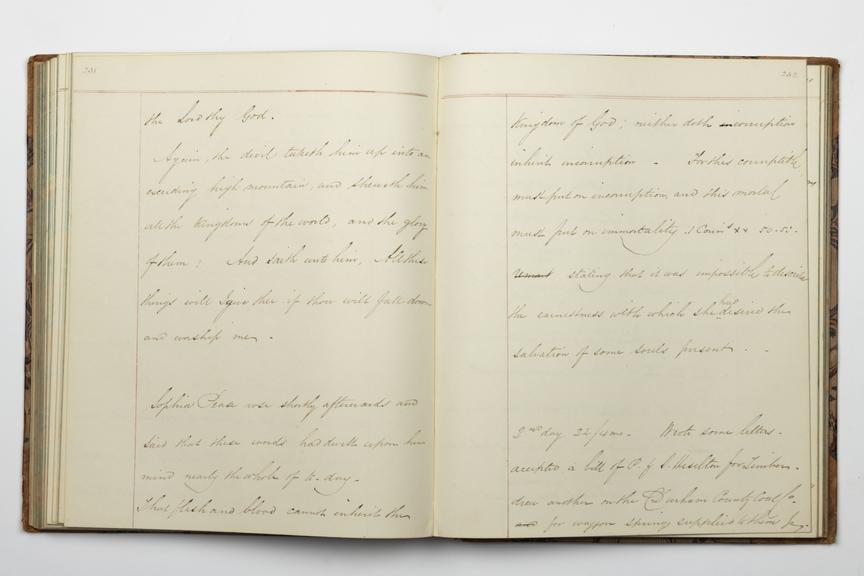 231
the Lord thy God.
Again, the devil taketh him up into an
exceeding high mountain, and sheweth him
all the Kingdoms of the world, and the glory
of them: And saith unto him, All these
things will I give thee if thou wilt fall down
and worship me.
Sophia Pease rose shortly afterwards and
said that these words had dwelt upon her
mind nearly the whole of to-day.
That flesh and blood cannot inherit the
232
Kingdom of God; neither doth corruption
inherit incorruption - For this corruptible
must put on incorruption, and this mortal
must put on immortality. 1 xx 50.53.
stating that it was impossible to describe
the earnestness with which she had desired the
salvation of some souls present.
2nd day 22/4mo. Wrote some letters.
accepted a bill of P. & J. Heselton for Timber.
drew another on the Durham County Coal Co.
and for waggon springs supplied to them by